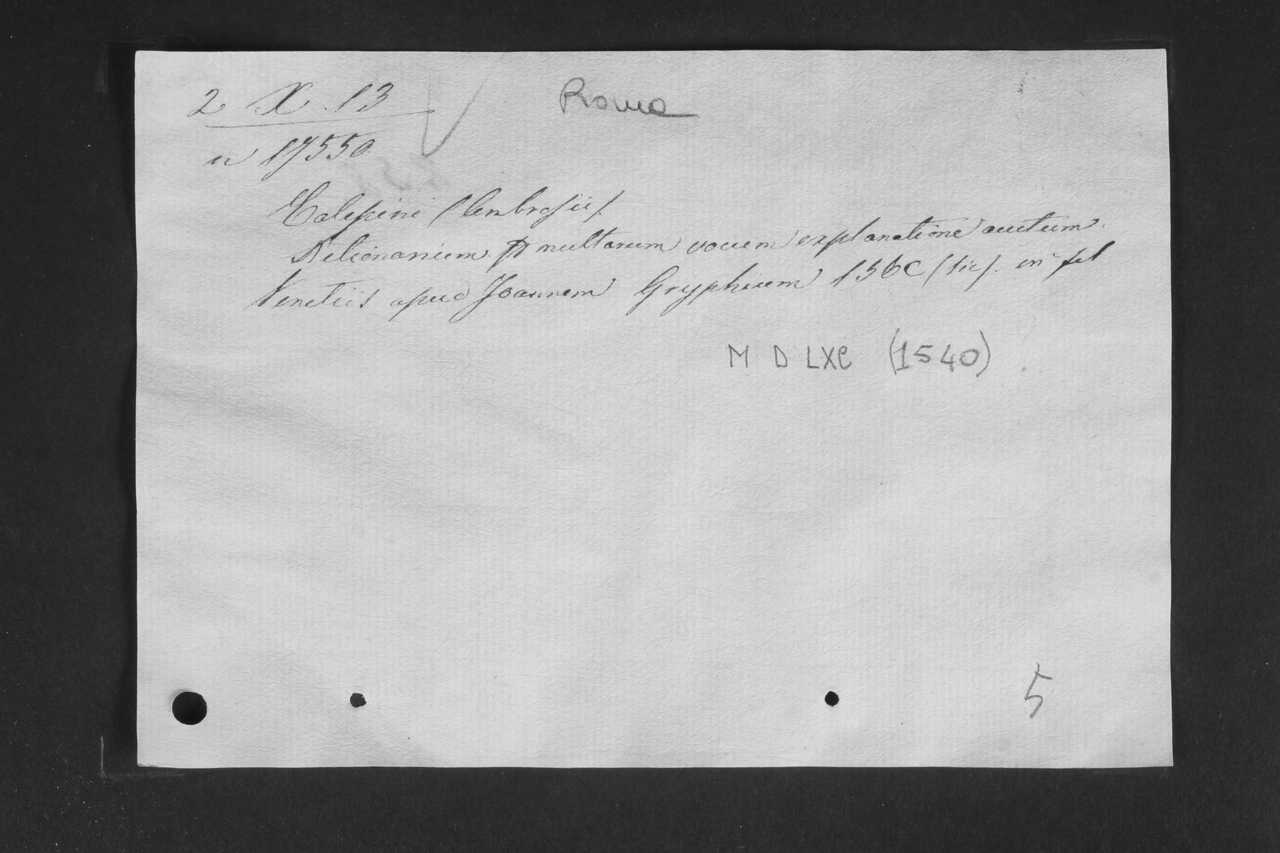 2 X .13
Roma
n 17550
Calepini (Ambrosii)
Dictionarium multarum vocum explanatione auctum.
Venetiis apud Joannem Gryphium 156C (sic). in fol
M D LXC (1540)
5